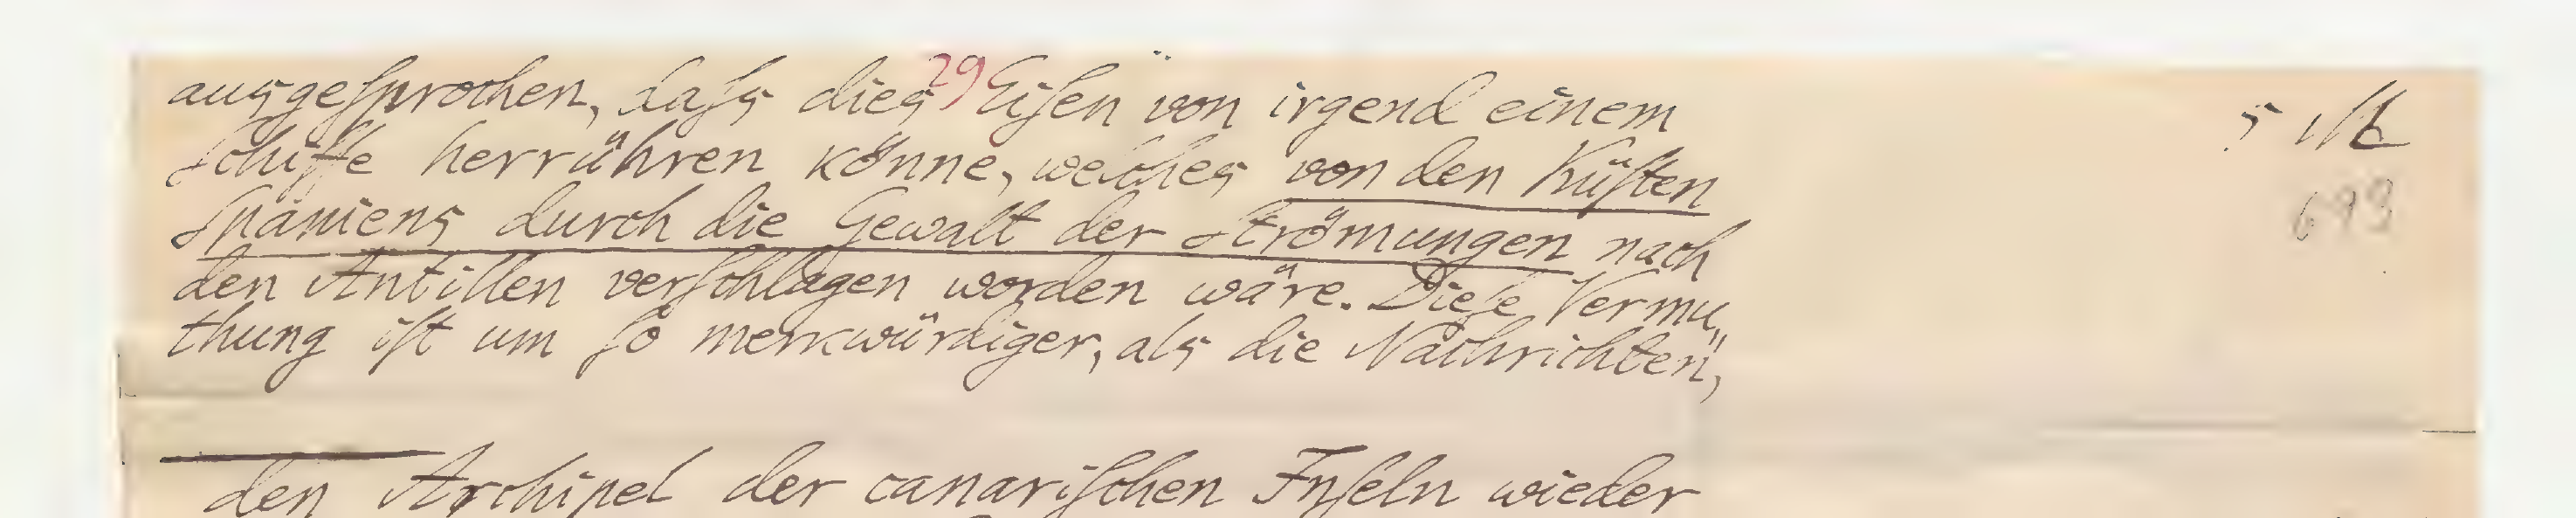 ausgesprochen, dass dies 29) Eisen von irgend einem
Schiffe herrühren könne, welches von den Küsten
Spaniens durch die Gewalt der Strömungen nach
den Antillen verschlagen worden wäre. Diese Vermu„
thung ist um so merkwürdiger, als die Nachrichten,
den Archipel der canarischen Inseln wieder
5
693